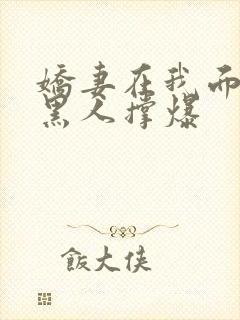 嬌妻在我面
黑人撐爆
飯大俠